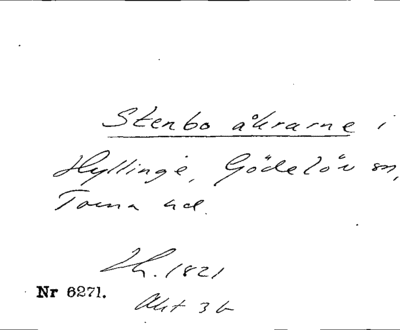 Stenbo åkrarne i
Hyllinge, Gödelöv sn,
Torna hd.
Lh. 1821
Nr 6271.
Akt 3b